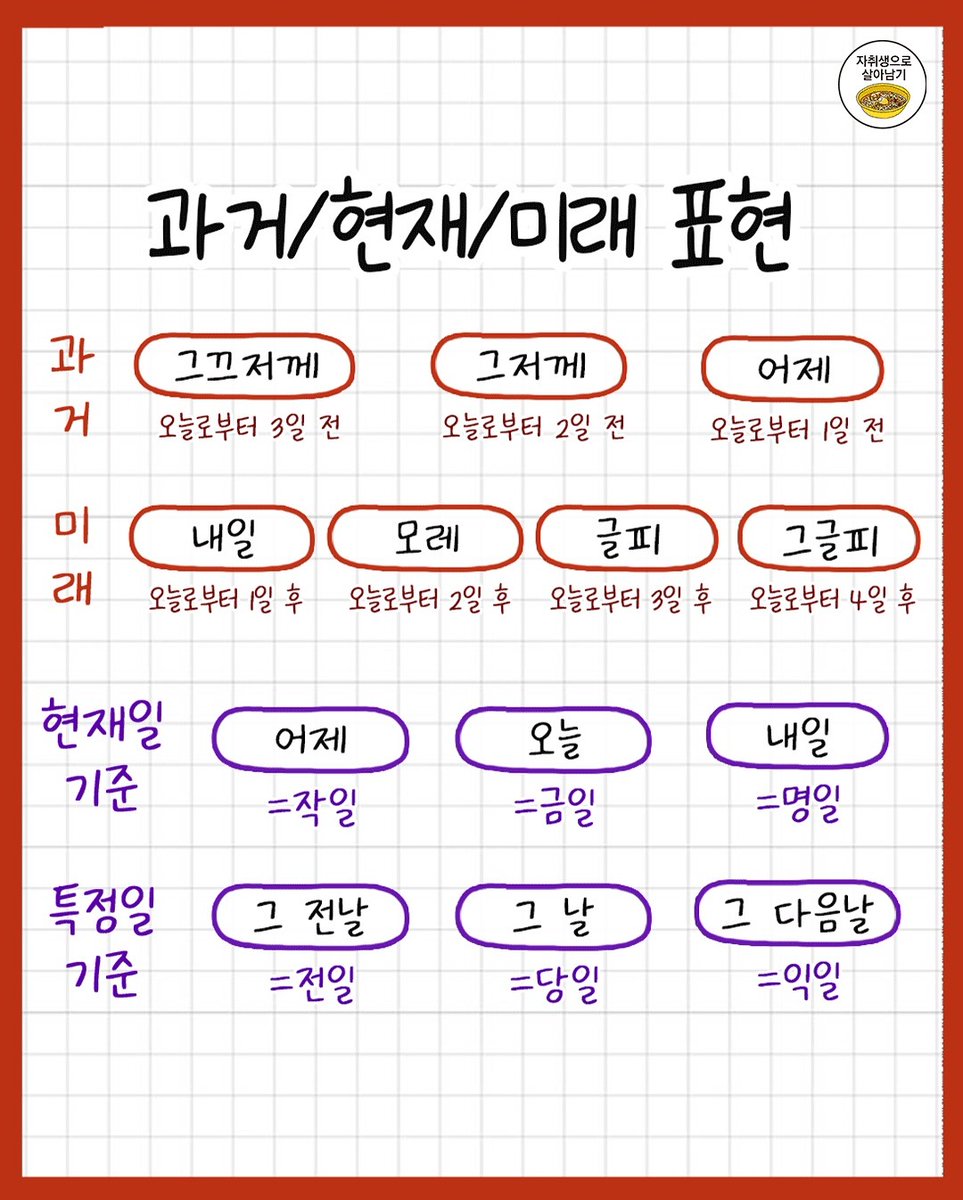 자취생으로
살아남기
과거/현재/미래 표현
과거
그끄저께 그저께 어제
오늘로부터 3일 전 오늘로부터 2일 전 오늘로부터 1일 전
미래
내일 모레 글피 그글피
오늘로부터 1일 후 오늘로부터 2일 후 오늘로부터 3일 후 오늘로부터 4일 후
현재일
기준
어제 오늘 내일
=작일 =금일 =명일
특정일
기준
그 전날 그 날 그 다음날
=전일 =당일 =익일